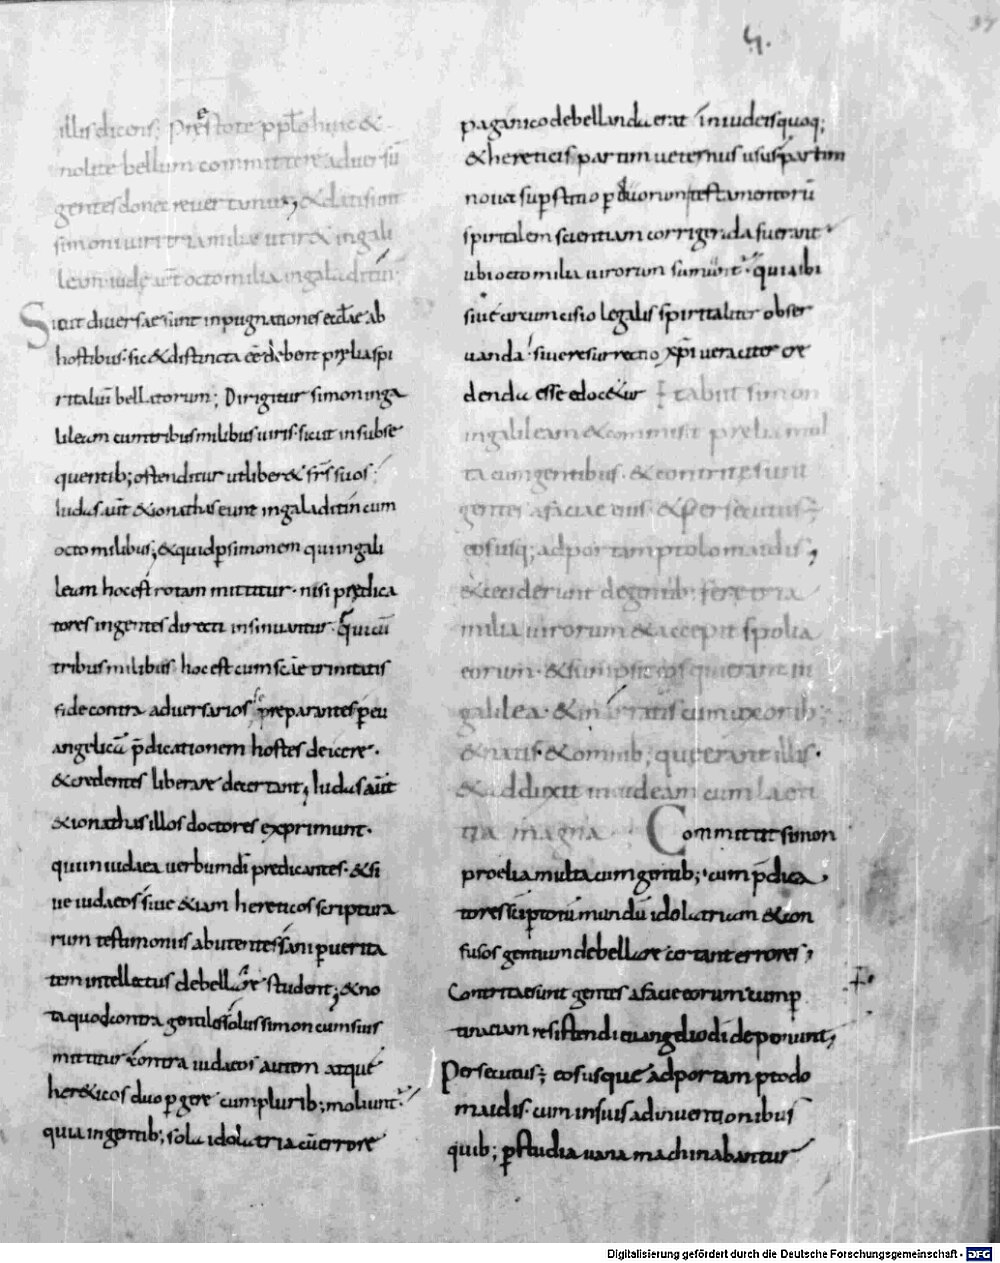 4.
34
illis dicens; Prestote pplo huic &
nolite bellum committere aduersū
gentes donec reuertamur; & datisunt
simoni uiri tria milia ut ir& in gali
leam· iudę aūt octo milia in galaditin·
Sicut diuersae sunt inpugnationes eccłae ab
hostibus· sic & distincta ēē debent pręlia spi
ritaliū bellatorum; Dirigitur simon in ga
lileam cum tribus milibus uiris· sicut in subse
quentib; ostenditur ut liber& fr̄s suos·
Iudas aūt & ionathas eunt in galaditin cum
octo milibus; & quid p simonem qui in gali
leam hoc est rotam mittitur· nisi prędica
tores in gentes directi insinuantur· qui cū
tribus milibus hoc est cum scae trinitatis
fide contra aduersarios se preparantes p eu
angelicā p̄dicationem hostes deicere·
& credentes liberare decertant; Iudas aūt
& ionathas illos doctores exprimunt·
qui in iudaea uerbum dī predicantes· & si
ue iudaeos siue &iam hereticos scriptura
rum testimoniis abutentes sani p uerita
tem intellectus debellare student; & no
ta quod contra gentiles solus simon cum suis
mittitur contra iudaeos autem atque
her&icos duo pgere cum plurib; moliunt·
quia in gentib; sola idolatria cū errore
paganico debellanda erat in iudeis quoq;
& hereticis partim ueternus usus partim
noua supstitio p duorum testamentorū
spiritalem scientiam corrigenda fuerant·
ubi octo milia uirorum sumunt· quia ibi
siue circumcisio legalis spiritaliter obser
uanda· siue resurrectio xpi ueraciter cre
denda esse edoc&ur Et abiit simon
in galileam & commisit prelia mul
ta cum gentibus· & contritę sunt
gentes a facie eius & persecutus ;
eos usq; ad portam ptolomaidis,
& ceciderunt de gentib; fere tria
milia uirorum & accepit spolia
eorum· & sumpsit eos qui erant in
galilea· & in arbatis cum uxorib;
& natis· & omnib; que erant illis·
& adduxit in iudeam cum laeti
tia magna· Committit simon
proelia multa cum gentib; cum p̄dica
tores scriptorū mundū idolatriam & con
fusos gentium debellare certant errores;
Contritae sunt gentes a facie eorum cum p
tinaciam resistendi euangelio dī deponunt,
Persecutus; eos usque ad portam ptolo
maidis· cum in suis adinuentionibus
quib; p studia uana machinabantur
Digitalisierung gefördert durch die Deutsche Forschungsgemeinschaft - DFG